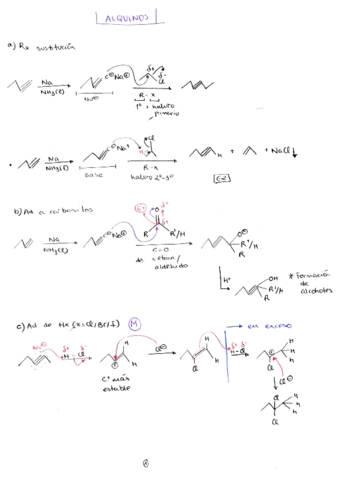 ALQUINOS
a) Rx sustitución
Na
NH3(l)
C⊖Na⊕
Nu⊖
δ+ δ-
Cl
R-X
1º haluro
primario
Na
NH3(l)
C⊖Na+
Base
H Cl
R-X
haluro 2º-3º
H + + NaCl↓
E2
b) Ad a carbonilos
Na
NH3(l)
C⊖Na⊕
O
R R'/H
C=O
de cetona/
aldehído
O⊖
R'/H
R
H+
OH
R'/H
R
* Formación
de
alcoholes
c) Ad de HX (X=Cl/Br/I) M
→ en exceso
Nu⊖
δ+ δ-
H-Cl
H
H
⊕
C+ más
estable
Cl⊖
H
H
Cl
δ+ δ-
H-Cl
H
H
H
Cl
Cl⊖
Cl
H
H
H
Cl